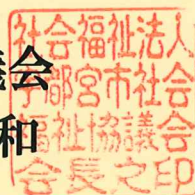 議会
和
社会福祉法人
宇都宮市社会
福祉協議会
会長之印